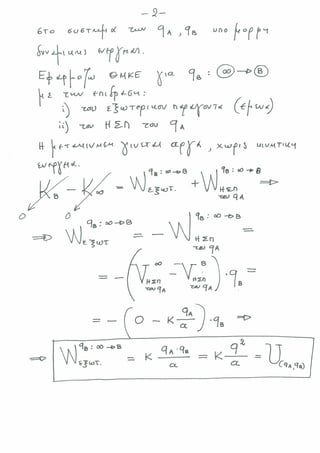 -2-
στο σύστημα των q_A, q_B υπό μορφή
δυναμικής ενέργειας.
Εφαρμόζω ΘΜΚΕ για q_B: ∞→B
με την επίδραση:
i) του εξωτερικού παράγοντα (εμάς)
ii) του ΗΣΠ του q_A
Η μετακίνηση γίνεται αργά, χωρίς κινητική
ενέργεια.
K_B - K_∞ = W_{εξωτ.}^{q_B: ∞→B} + W_{ΗΣΠ του q_A}^{q_B: ∞→B} ⇒
0 0
⇒ W_{εξωτ}^{q_B: ∞→B} = - W_{ΗΣΠ του q_A}^{q_B: ∞→B} =
= - (V_{ΗΣΠ του q_A}^{∞} - V_{ΗΣΠ του q_A}^{B}) · q_B =
= - (0 - K \frac{q_A}{α}) · q_B ⇒
⇒ W_{εξωτ.}^{q_B: ∞→B} = K \frac{q_A · q_B}{α} = K \frac{q^2}{α} = U_{(q_A, q_B)}